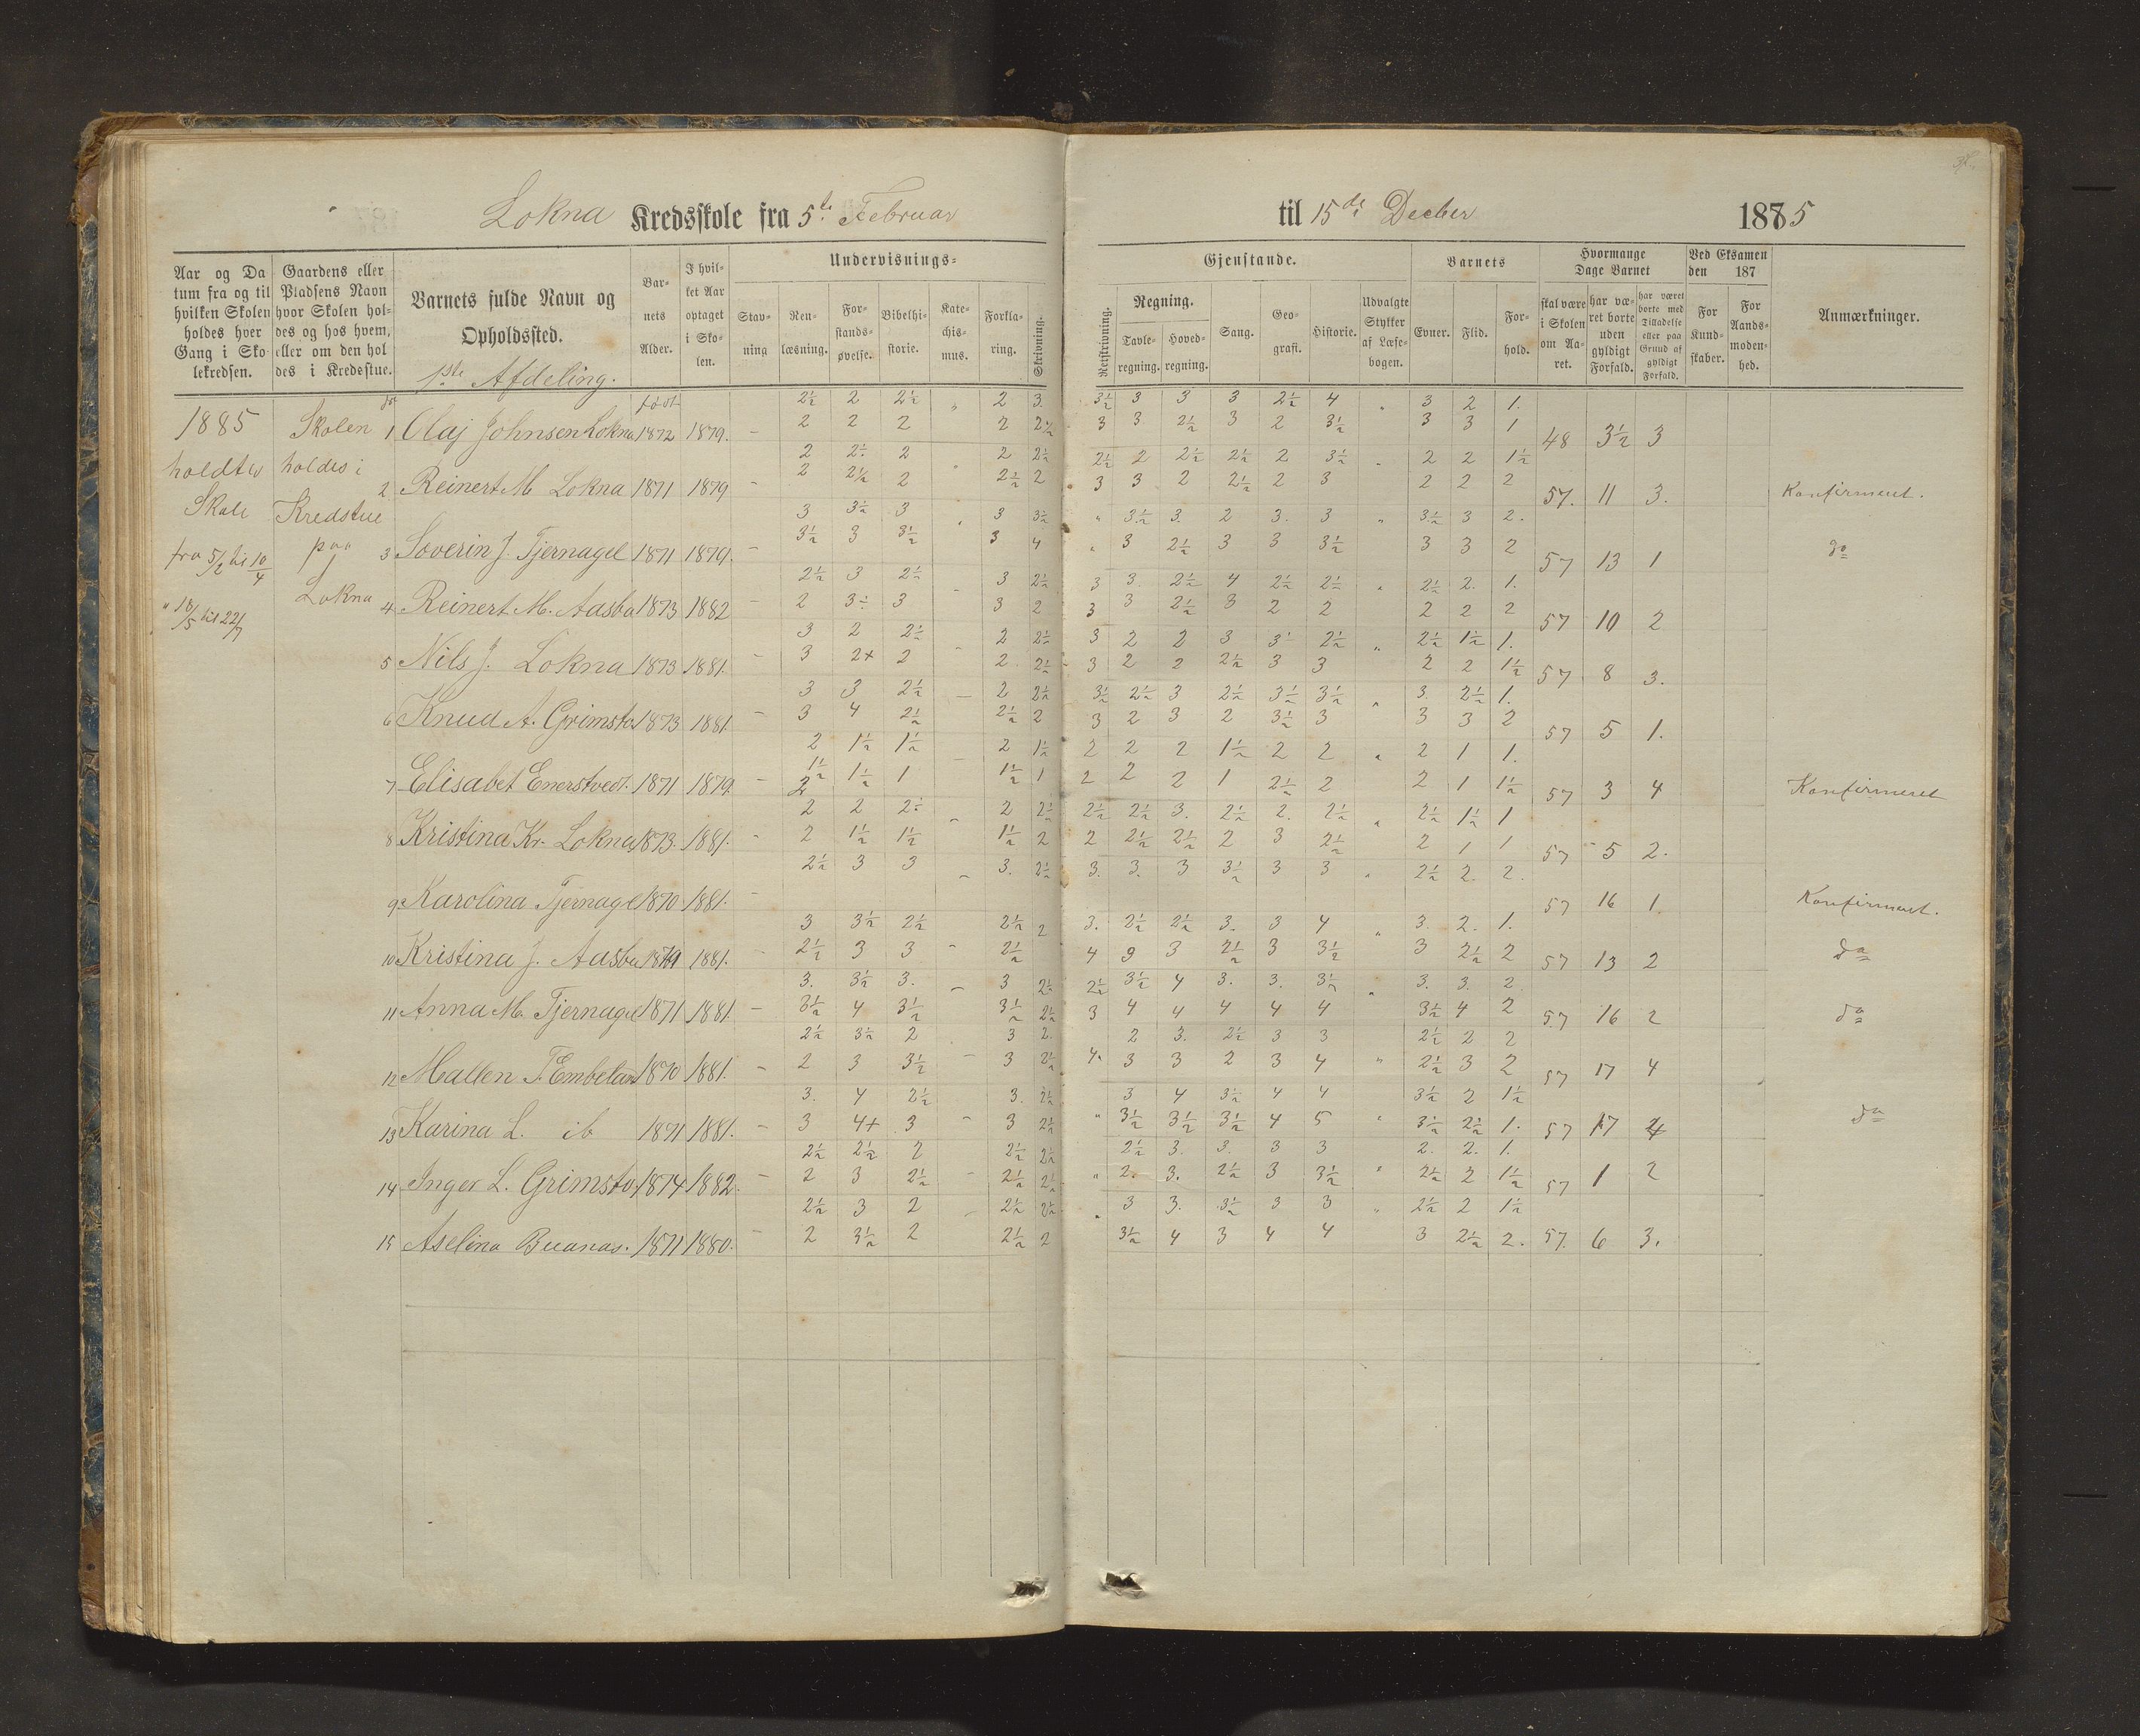 Lokna Kredsskole fra 5te Februar til 15de Decber 1885
Aar og Da
tum fra og til
hvilken Skolen
holdes hver
Gang i Sko
lekredsen.
Gaardens eller
Pladsens Navn
hvor Skolen hol-
des og hos hvem,
eller om den hol
des i Kredsstue.
Barnets fulde Navn og
Opholdssted.
1ste Afdeling.
Bar-
nets
Alder.
I hvil-
ket Aar
optaget
i Sko-
len.
Undervisnings-
Stav-
ning
Ren-
læsning.
For-
stands-
øvelse.
Bibelhi-
storie.
Kate-
chis-
mus.
Forkla-
ring.
Skrivning.
Gjenstande.
Retskrivning.
Regning.
Tavle-
regning.
Hoved-
regning.
Sang.
Geo-
grafi.
Historie.
Udvalgte
Stykker
af Læse-
bogen.
Barnets
Evner.
Flid.
For-
hold.
Hvormange
Dage Barnet
skal være
i Skolen
om Aa-
ret.
har væ-
ret borte
uden
gyldigt
Forfald.
har været
borte med
Tilladelse
eller paa
Grund af
gyldigt
Forfald.
Ved Eksamen
den 187
For
Kund-
skaber.
For
Aands-
moden-
hed.
Anmærkninger.
1885
holdtes
Skole
fra 5/2 til 10/4
" 18/5 til 22/7
Skolen
holdes i
Kredstue
paa
Lokna
født
2½ 2 2½ " 2 3. 3½ 3 3 3 2½ 4 " 3 2 1.
1 Olaj Johnsen Lokna 1872 1879. - 2 2 2 2 2½ 3 3 2½ 3 2 3½ 3 3 1 48 3½ 3
2 2½ 2 2 2½ 2½ 2 2½ 2½ 2 3½ " 2 2 1½
2 Reinert M Lokna 1871 1879 - 2 2½ 2 2½ 2 3 3 2 2½ 2 3 2 2 2 57. 11 3. Konfirmeret.
3 3½ 3 " 3 3½ " 3½ 3. 2 3. 3 " 3½ 3 2.
3 Soverin J. Tjernagel 1871 1879. - 3½ 3 3½ 3 4 " 3 2½ 3 3 3½ 3 3 2 57 13 1 do
2½ 3 2½ - 3 2½ 3 3. 2½ 4 2½ 2½ " 2½ 2. 1.
4 Reinert M. Aasbø 1873 1882 - 2 3½ 3 3 2 3 3 2½ 3 2 2 2 2 2 57 10 2
3 2 2½ - 2 2½ 3 2 2 3 3½ 2½ " 2½ 1½ 1.
5 Nils J. Lokna 1873 1881. - 3 2+ 2 2. 2½ 3 2 2 2½ 3 3 2 2 1½ 57 8 3.
3 3 2½ - 2 2½ 3½ 2½ 3 2½ 3½ 3½ " 3. 2½ 1.
6 Knud A. Grimsto 1873 1881. - 3 4 2½ 2½ 2 3 2 3 2 3½ 3 3 3 2 57 5 1.
2 1½ 1½ - 2 1½ 2 2 2 1½ 2 2 " 2 1 1.
7 Elisabet Enerstvedt. 1871 1879. - 1½ 1½ 1 1½ 1 2 2 2 1 2½ 2 2 1 1½ 57 3 4 Konfirmeret
2 2 2 2½ - 2 2½ 2½ 2½ 3. 2½ 2. 2½ " 2½ 1½ 1
8 Kristina Kr. Lokna 1873. 1881. - 2 1½ 1½ 1½ 2 2 2½ 2½ 2 3 2½ 2 1 1 57 5 2.
2½ 3 3 - 3. 2½ 3. 3. 3 3½ 3 3 " 2½ 2. 2.
9 Karolina Tjernagel 1870 1881. - 57 16 1. Konfirmeret.
3 3½ 2½ 2½ 2 3. 2½ 2½ 3. 3 4 " 3. 2. 1.
10 Kristina J. Aasbø 1871 1881. - 2½ 3 3 - 2½ 4 3 3 2½ 3 3½ 3 2½ 2 57 13 2 do
3. 3½ 3. - 3 2½ 2½ 3½ 4 3. 3. 3½ " 3. 3. 2.
11 Anna M. Tjernagel 1871 1881. - 3½ 4 3½ 3½ 2½ 3 4 4 4 4 4 3½ 4 2 57 16 2 do
2½ 3½ 2 3 2. 2 3. 2½ 3 3 2½ 2 2
12 Mallen T. Embeland 1870 1881. - 2 3 3½ - 3 2½ 4. 3 3 2 3 4 " 2½ 3 2 57 17 4
3. 4 2½ 3. 2½ 3 4 3½ 4 4 3½ 2 1½
13 Karina L. ib 1871 1881. - 3 4+ 3 - 3 2½ " 3½ 3½ 3½ 4 5 " 3½ 2½ 1. 57 17 4 do
2½ 2½ 2 2½ 2½ 2½ 3. 3. 3 3 2. 2. 1.
14 Inger L. Grimsto 1874 1882. - 2 3 2½ - 2½ 2½ " 2. 3. 2½ 3 3½ " 2½ 2 1½ 57 1 2
2½ 3 2 - 2½ 2½ " 3 3. 3½ 3 3 " 2½ 2 1½
15 Aselina Buanas. 1871 1880. - 2 3½ 2 2½ 2 3½ 4 3 4 4 3 2½ 2. 57. 6 3.